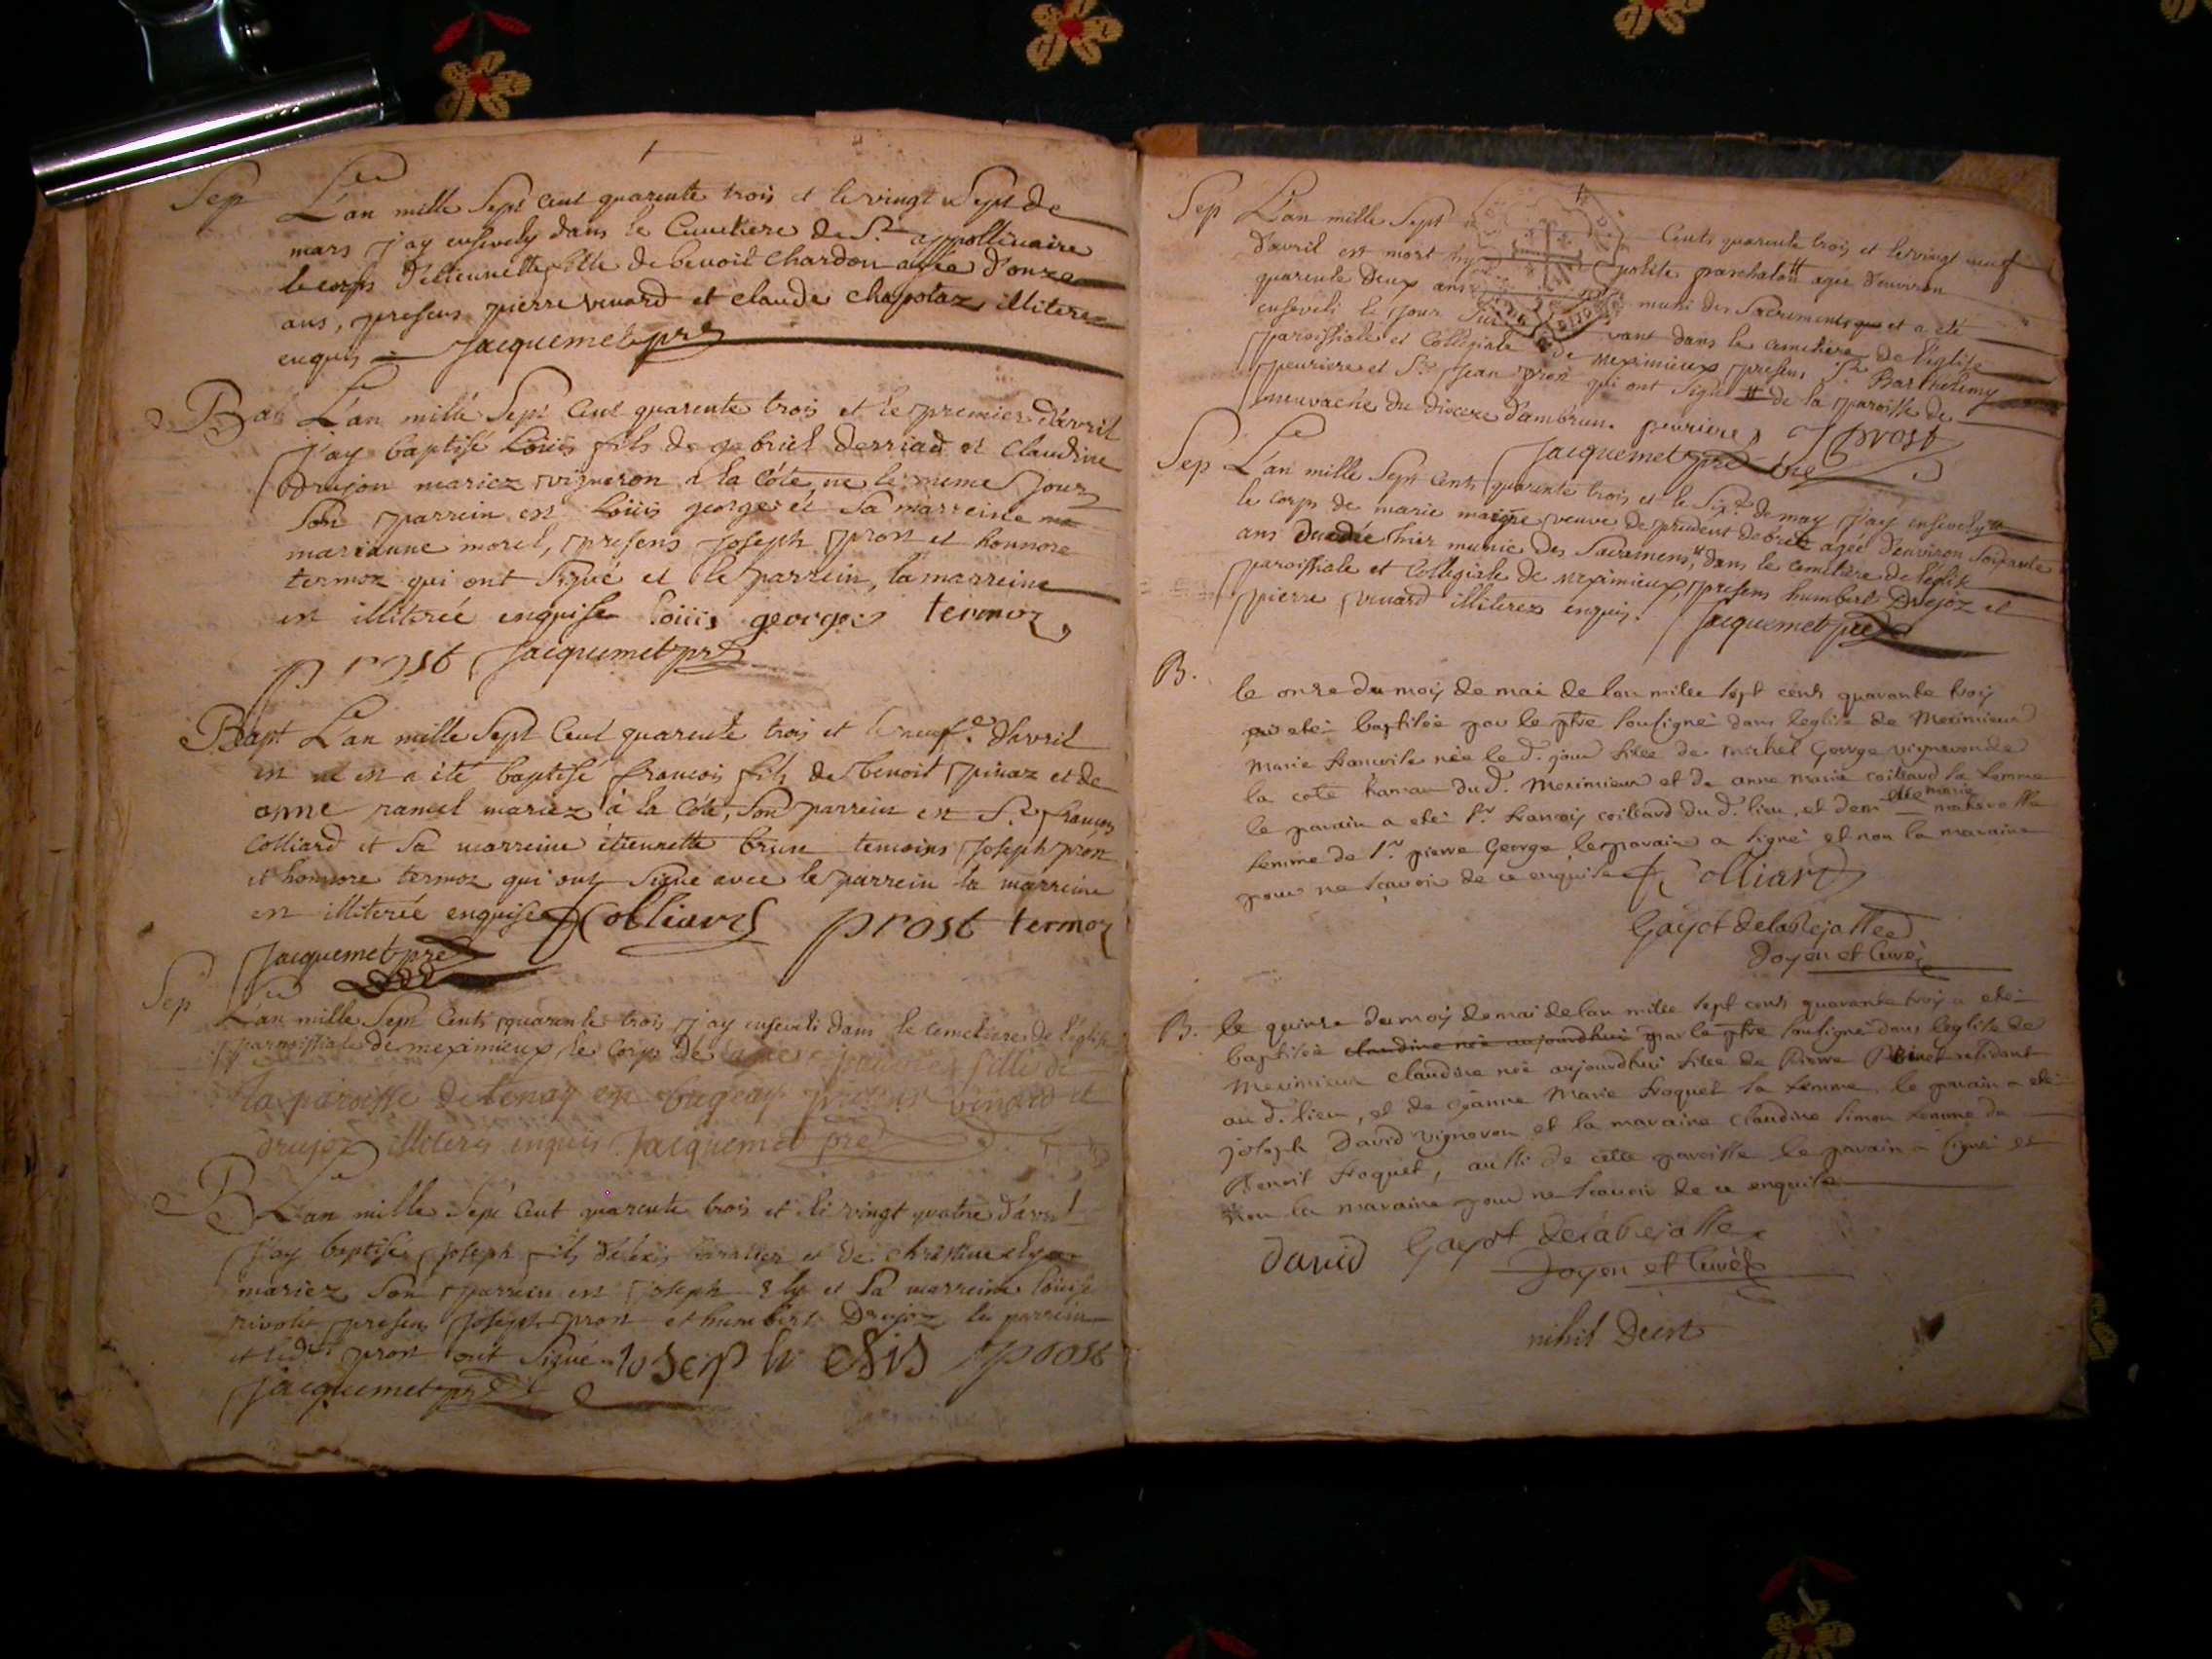 Sep L'an mille Sept Cent quarente trois et le vingt Sept de
mars j'ay ensevely dans le Cimetiere de St. appollinaire
le corps d'etiennette fille de benoit Chardon agée d'onze
ans, presens pierre venard et claude chapolaz illiterez
enquis Jacquemet pre
Bap L'an mille Sept Cent quarente trois et le premier d'avril
j'ay baptisé Loüis fils de gabriel derriad et Claudine
Drujon mariez vigneron à la Côte, ne le meme jour
Son parrein est Loüis george et Sa marreine
marianne morel, presens joseph pron et honnore
termoz qui ont Signé et le parrein, la marreine
est illiterée enquise loüis georges termoz
prost Jacquemet pre
Bapt L'an mille Sept Cent quarente trois et le neuf.e d'avril
est né et a été baptisé francois fils de benoit pinaz et de
anne ramel mariez à la Côte, Son parrein est Sr. francois
Colliard et Sa marreine étiennette brun temoins joseph pron
et honnore termoz qui ont Signé avec le parrein la marreine
est illiterée enquise Colliard prost termoz
Jacquemet pre
Sep L'an mille Sept Cents quarente trois j'ay enseveli dans le cemetiere de l'église
parroissiale de meximieux, le Corps de fille de
la paroisse de tenay en bugeay presens venard et
drujoz illiteres enquis Jacquemet pre
B L'an mille Sept Cent quarente trois et le vingt quatre d'avril
j'ay baptisé joseph fils d'alexis et de christine ely
mariez Son parrein est joseph Ely et Sa marreine loüise
rivolet presens joseph pron et humbert Drujoz le parrein
et led. pron ont Signé joseph prost
Jacquemet pre
Sep L'an mille Sept Cents quarente trois et le vingt neuf
d'avril est mort hypolite paschal # agée d'environ
quarente Deux ans muni des Sacrements et a été
enseveli le jour Suivant dans le cemetiere de l'église
paroissiale et Collegiale de Meximieux presens Sr. Barthelemy
peuriere et Sr. jean pron qui ont Signé # de la paroisse de
neuvache du diocese d'ambrun. peuriere J prost
Jacquemet pre
Sep L'an mille Sept Cents quarente trois et le Six.e de may j'ay ensevely #
le corps de marie maigre veuve de prudent debrét agée d'environ Soixante
ans hier munie des Sacremens, # dans le cemetiere de l'église
paroissiale et Collegiale de Meximieux, presens humbert Drujoz et
pierre venard illiterez enquis. Jacquemet pre
B. le onze du mois de mai de lan mille sept cents quarante trois
a eté baptisée par le ptre soussigné dans leglise de Meximieux
Marie francoise née le d. jour fille de michel George vigneron de
la cote hameau du d. Meximieux et de anne marie coilliard sa femme
le parain a eté Sr. francois coilliard du d. lieu, et demlle marie
femme de Sr. pierre George, le parain a signé et non la maraine
pour ne scavoir de ce enquise Colliard
Gayot delabejasse
Doyen et Curé
B. le quinze du mois de mai de lan mille sept cents quarante trois a eté
baptisée claudine née aujourdhui par le ptre soussigné dans leglise de
Meximieux claudine née aujourdhui fille de Pierre Pinet residant
au d. lieu, et de jeanne Marie froquet sa femme, le parain a eté
joseph David vigneron et la maraine claudine simon femme de
Benoit froquet, aussi de cette paroisse le parain a signé et
non la maraine pour ne scavoir de ce enquise
David Gayot delabejasse
Doyen et Curé
nihil Deest